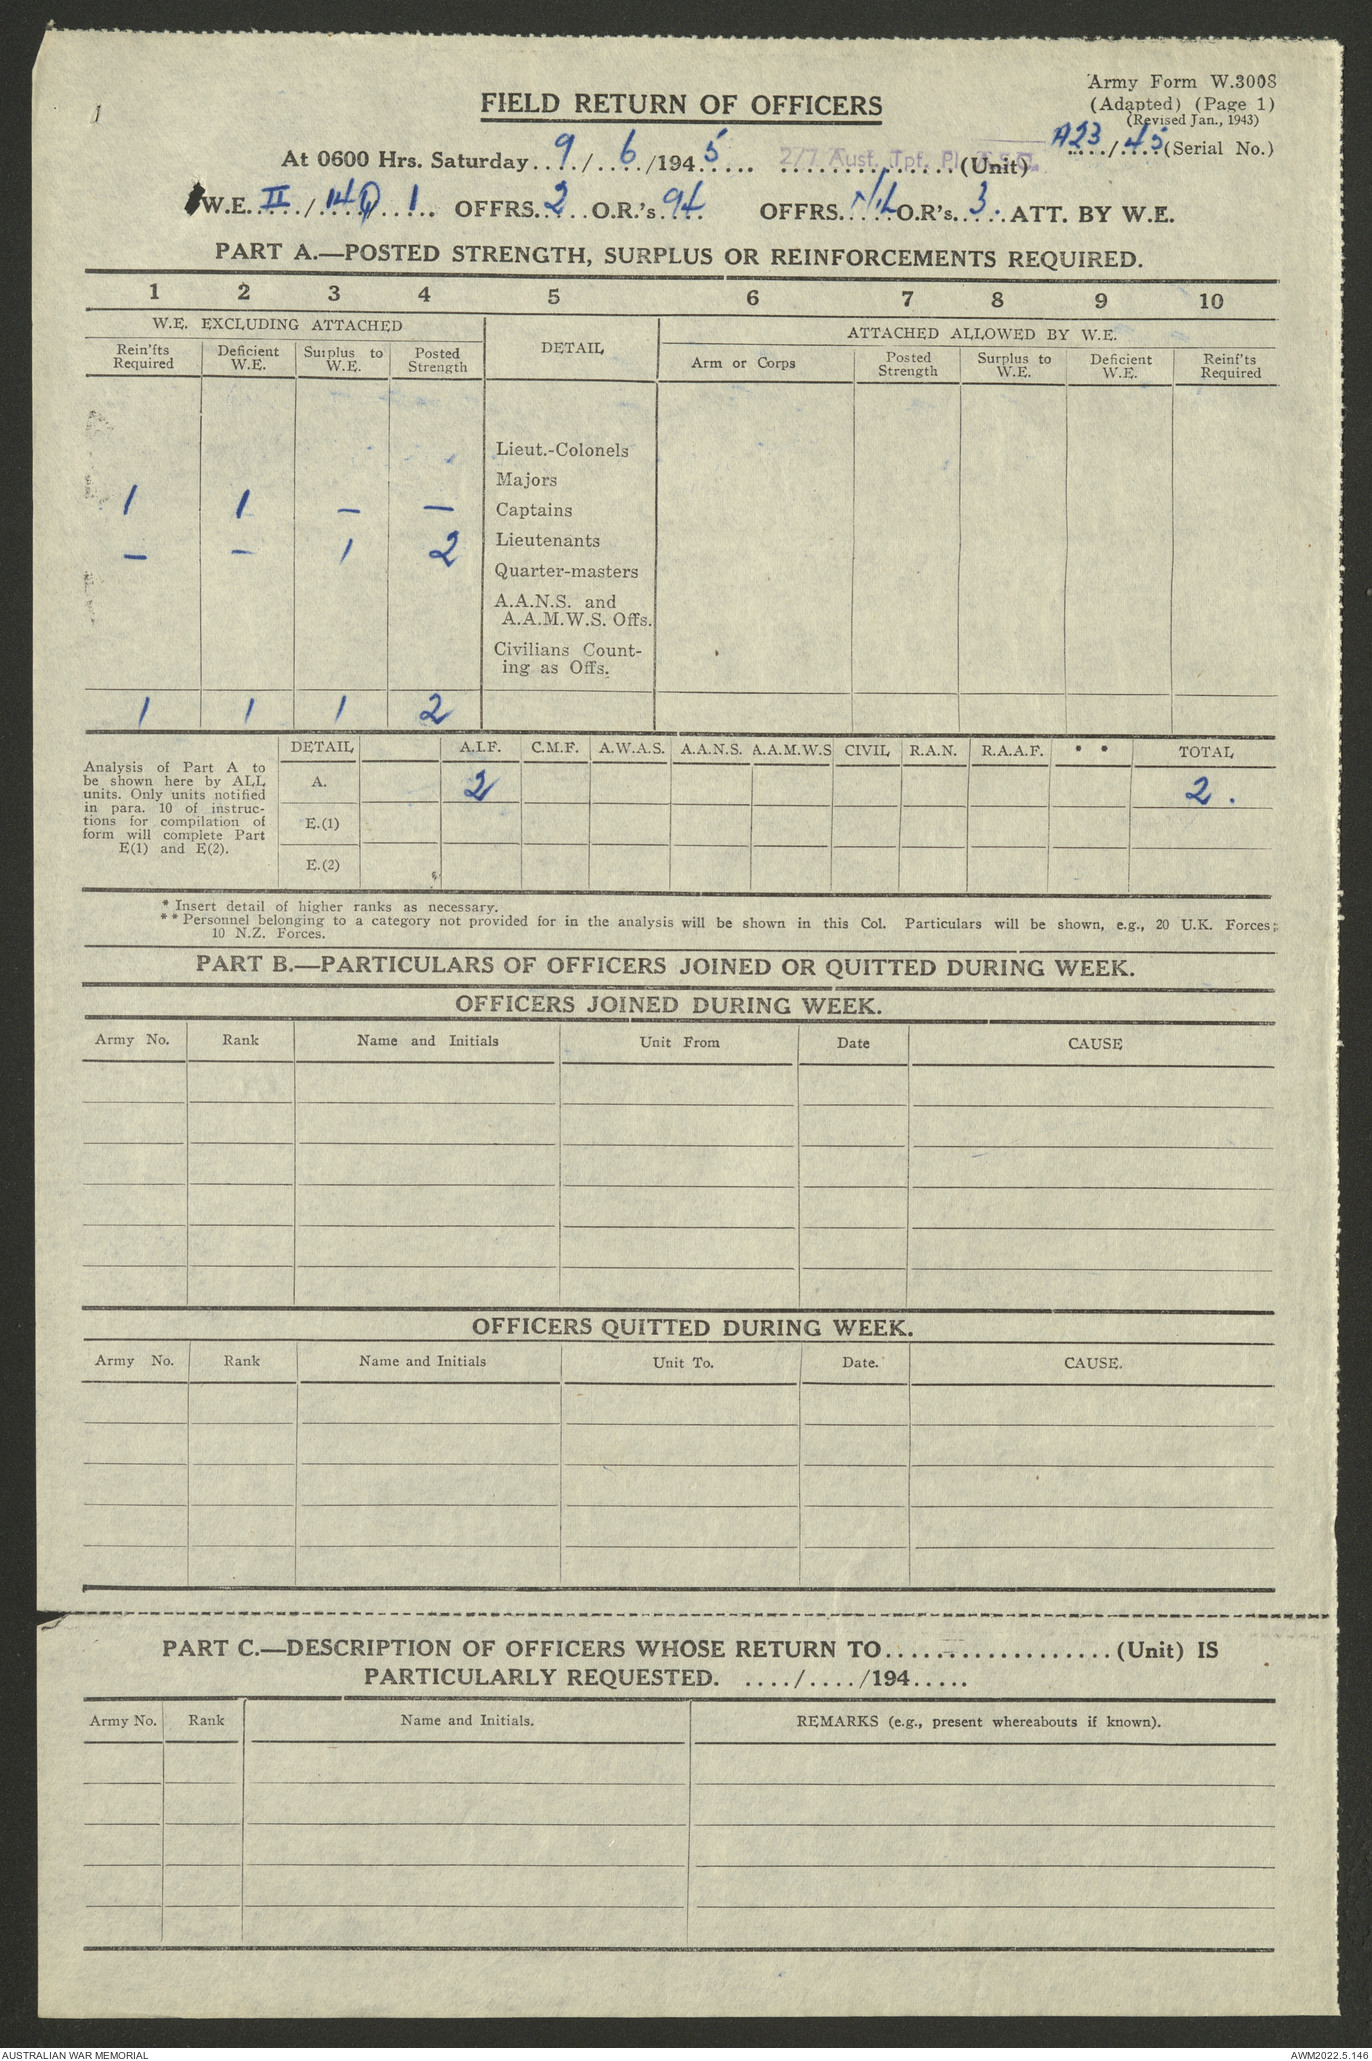 Army Form W.3008
FIELD RETURN OF OFFICERS
(Adapted) (Page 1)
(Revised Jan., 1943)
A23/45 (Serial No.)
At 0600 Hrs. Saturday 9/6/1945 2/7 Aust. Tpt. Pl. (Unit)
W.E. II/ 1 OFFRS. 2 O.R.'s 94 OFFRS. NIL O.R's. 3. ATT. BY W.E.
PART A.—POSTED STRENGTH, SURPLUS OR REINFORCEMENTS REQUIRED.
1 2 3 4 5 6 7 8 9 10
W.E. EXCLUDING ATTACHED DETAIL ATTACHED ALLOWED BY W.E.
Rein'fts Required Deficient W.E. Surplus to W.E. Posted Strength Arm or Corps Posted Strength Surplus to W.E. Deficient W.E. Reinf'ts Required
Lieut.-Colonels
Majors
1 1 — — Captains
— — 1 2 Lieutenants
Quarter-masters
A.A.N.S. and
A.A.M.W.S. Offs.
Civilians Count-
ing as Offs.
1 1 1 2
DETAIL A.I.F. C.M.F. A.W.A.S. A.A.N.S. A.A.M.W.S CIVIL R.A.N. R.A.A.F. * * TOTAL
Analysis of Part A to
be shown here by ALL
units. Only units notified
in para. 10 of instruc-
tions for compilation of
form will complete Part
E(1) and E(2).
A. 2 2.
E.(1)
E.(2)
* Insert detail of higher ranks as necessary.
** Personnel belonging to a category not provided for in the analysis will be shown in this Col. Particulars will be shown, e.g., 20 U.K. Forces;
10 N.Z. Forces.
PART B.—PARTICULARS OF OFFICERS JOINED OR QUITTED DURING WEEK.
OFFICERS JOINED DURING WEEK.
Army No. Rank Name and Initials Unit From Date CAUSE
OFFICERS QUITTED DURING WEEK.
Army No. Rank Name and Initials Unit To. Date. CAUSE.
PART C.—DESCRIPTION OF OFFICERS WHOSE RETURN TO.................... (Unit) IS
PARTICULARLY REQUESTED. ..../..../194.....
Army No. Rank Name and Initials. REMARKS (e.g., present whereabouts if known).
AUSTRALIAN WAR MEMORIAL AWM2022.5.146